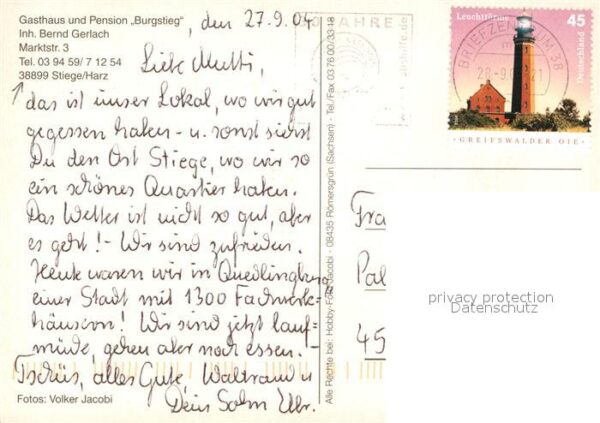 Gasthaus und Pension „Burgstieg"
Inh. Bernd Gerlach
Marktstr. 3
Tel. 03 94 59/ 7 12 54
38899 Stiege/Harz
, den 27.9.04
Liebe Mutti,
das ist unser Lokal, wo wir gut
gegessen haben - u. sonst siehst
Du den Ort Stiege, wo wir so
ein schönes Quartier haben.
Das Wetter ist nicht so gut, aber
es geht! - Wir sind zufrieden.
Heute waren wir in Quedlinburg
einer Stadt mit 1300 Fachwerk=
häusern! Wir sind jetzt lauf=
müde, gehen aber noch essen. -
Tschüs, alles Gute, Waltraud u
Dein Sohn Ulr.
Fotos: Volker Jacobi
Alle Rechte bei: Hobby-Foto Jacobi - 08435 Römersgrün (Sachsen) - Tel./Fax 0376 00/33 18
JAHRE
BRIEFZENTRUM 38
Leuchttürme
45
Deutschland
GREIFSWALDER OIE
Fra
Pal
45
privacy protection
Datenschutz